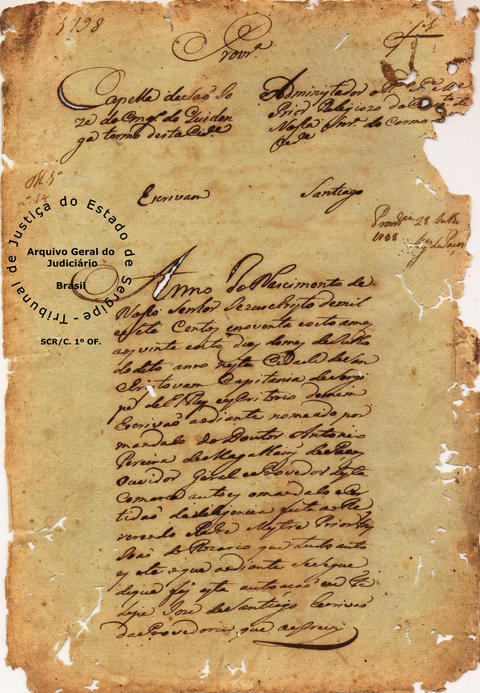 1798
Provr.ª
Capella de Sao Jo
ze do Eng.º do Quidon
ga termo desta Cid.e
Administrador o
Prior Religiozo do
Nossa Snr.ª do Carmo
Escrivam
Santiago
n.º 14
28 Julho
1798
Tribunal de Justiça do Estado de Sergipe -
Arquivo Geral do
Judiciário
Brasil
SCR/C. 1º OF.
Anno do Nascimento de
Nosso Senhor Jezus Cristo de mil
e sete Centos e noventa e oito annos
aos vinte e oito dias do mes de Julho
do dito anno nesta Cidade de Sam
Cristovam Capitania de Sergi
pe de El Rey e escritorio de mim
Escrivaõ ao diante nomeado por
mandado do Doutor Antonio
Pereira de Magalhaens de Passos
Ouvidor Geral e Provedor desta
Comarca autoey o mandado e Cer
tidaõ da deligencia feita ao Re
verendo Padre Mestre Prior Frey
Joaõ do Rozario que tudo hé
o que ao diante se segue
de que fiz esta autuacaõ eu
Joze de Santiago Escrivaõ
da Provedoria que a escrevi